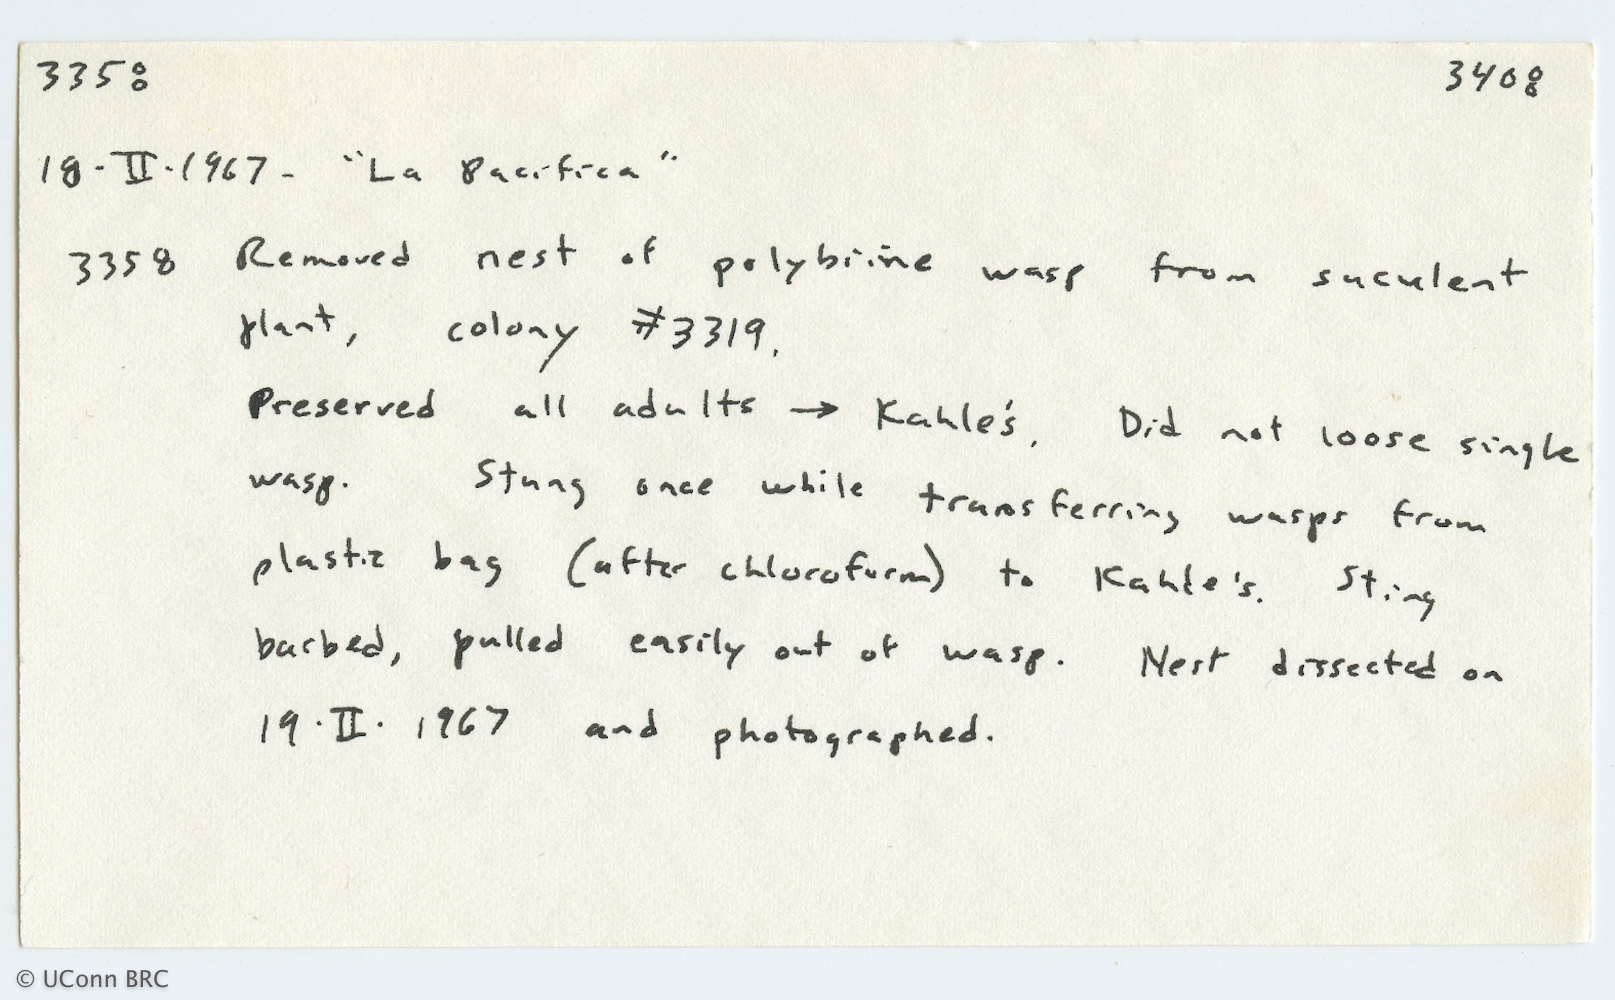 3358 3408
18·II·1967- "La Pacifica"
3358 Removed nest of polybiine wasp from suculent
plant, colony #3319.
Preserved all adults → Kahle's. Did not loose single
wasp. Stung once while transferring wasps from
plastic bag (after chloroform) to Kahle's. Sting
barbed, pulled easily out of wasp. Nest dissected on
19·II·1967 and photographed.
© UConn BRC